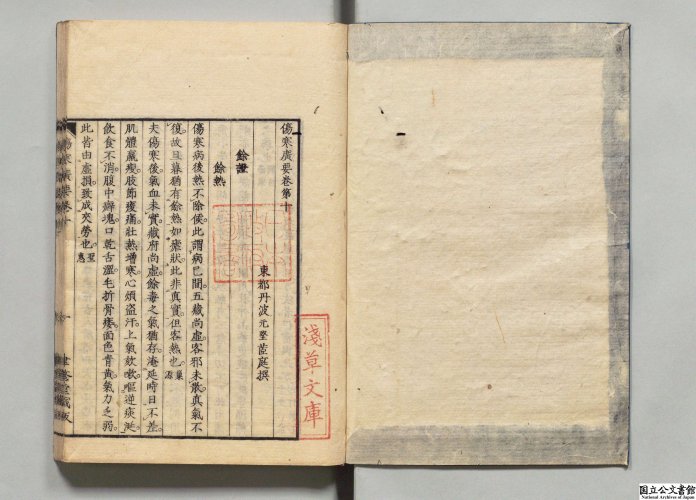 傷寒廣要卷第十
東都丹波元堅茝庭撰
餘證
餘熱
傷寒病後熱不除候。此謂病已間。五藏尚虛。客邪未散。真氣不
復。故旦暮猶有餘熱如瘧狀。此非真實。但客熱也。巢源
夫傷寒後。氣血未實。藏府尚虛。餘毒之氣猶存。淹延時日不差。
肌體羸瘦。肢節痠痛。壯熱增寒。心煩盜汗。上氣欬嗽。嘔逆痰涎。
飲食不消。腹中癖塊。口乾舌澀。毛折骨痿。面色青黃。氣力乏弱。
此皆由虛損。致成夾勞也。聖惠
傷寒廣要卷十
一
淺草文庫
国立公文書館
National Archives of Japan